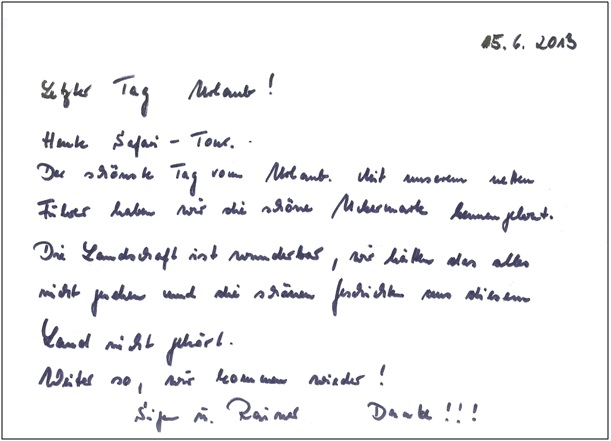 15.6.2013
Letzter Tag Urlaub!
Heute Safari-Tour.
Der schönste Tag vom Urlaub. Mit unserem netten
Führer haben wir die schöne Uckermark kennengelernt.
Die Landschaft ist wunderbar, wir hätten das alles
nicht gesehen und die schönen Geschichten aus diesem
Land nicht gehört.
Weiter so, wir kommen wieder!
u. Rainer Danke!!!